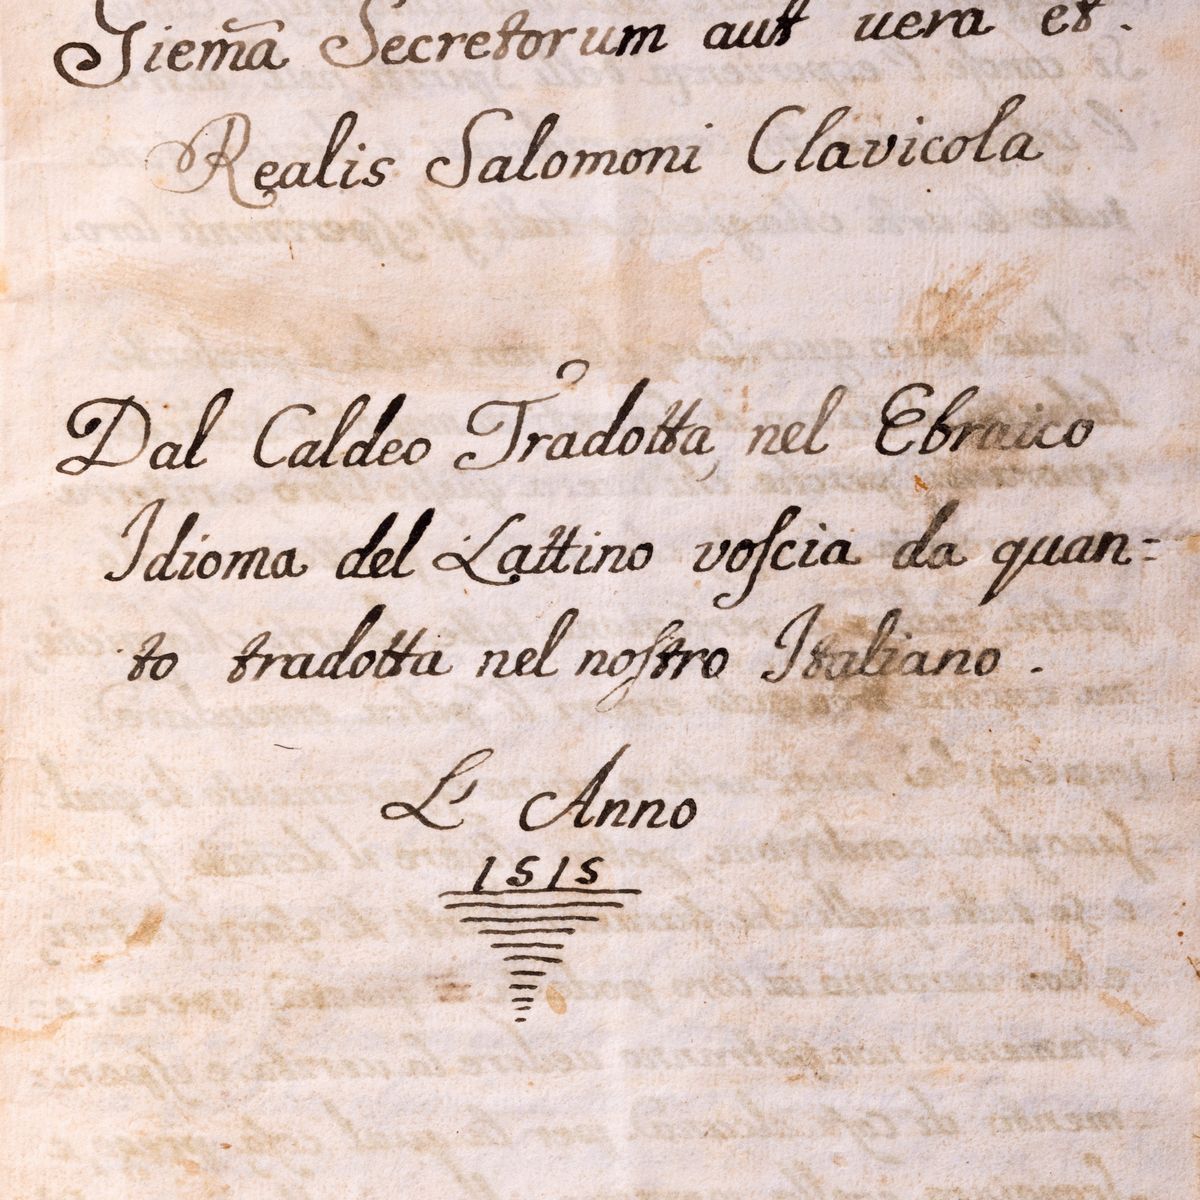 Giem̃a Secretorum aut vera et.
Realis Salomoni Clavicola
Dal Caldeo Tradotta nel Ebraico
Idioma del Lattino voſcia da quan=
to tradotta nel noſtro Italiano.
L' Anno
1515